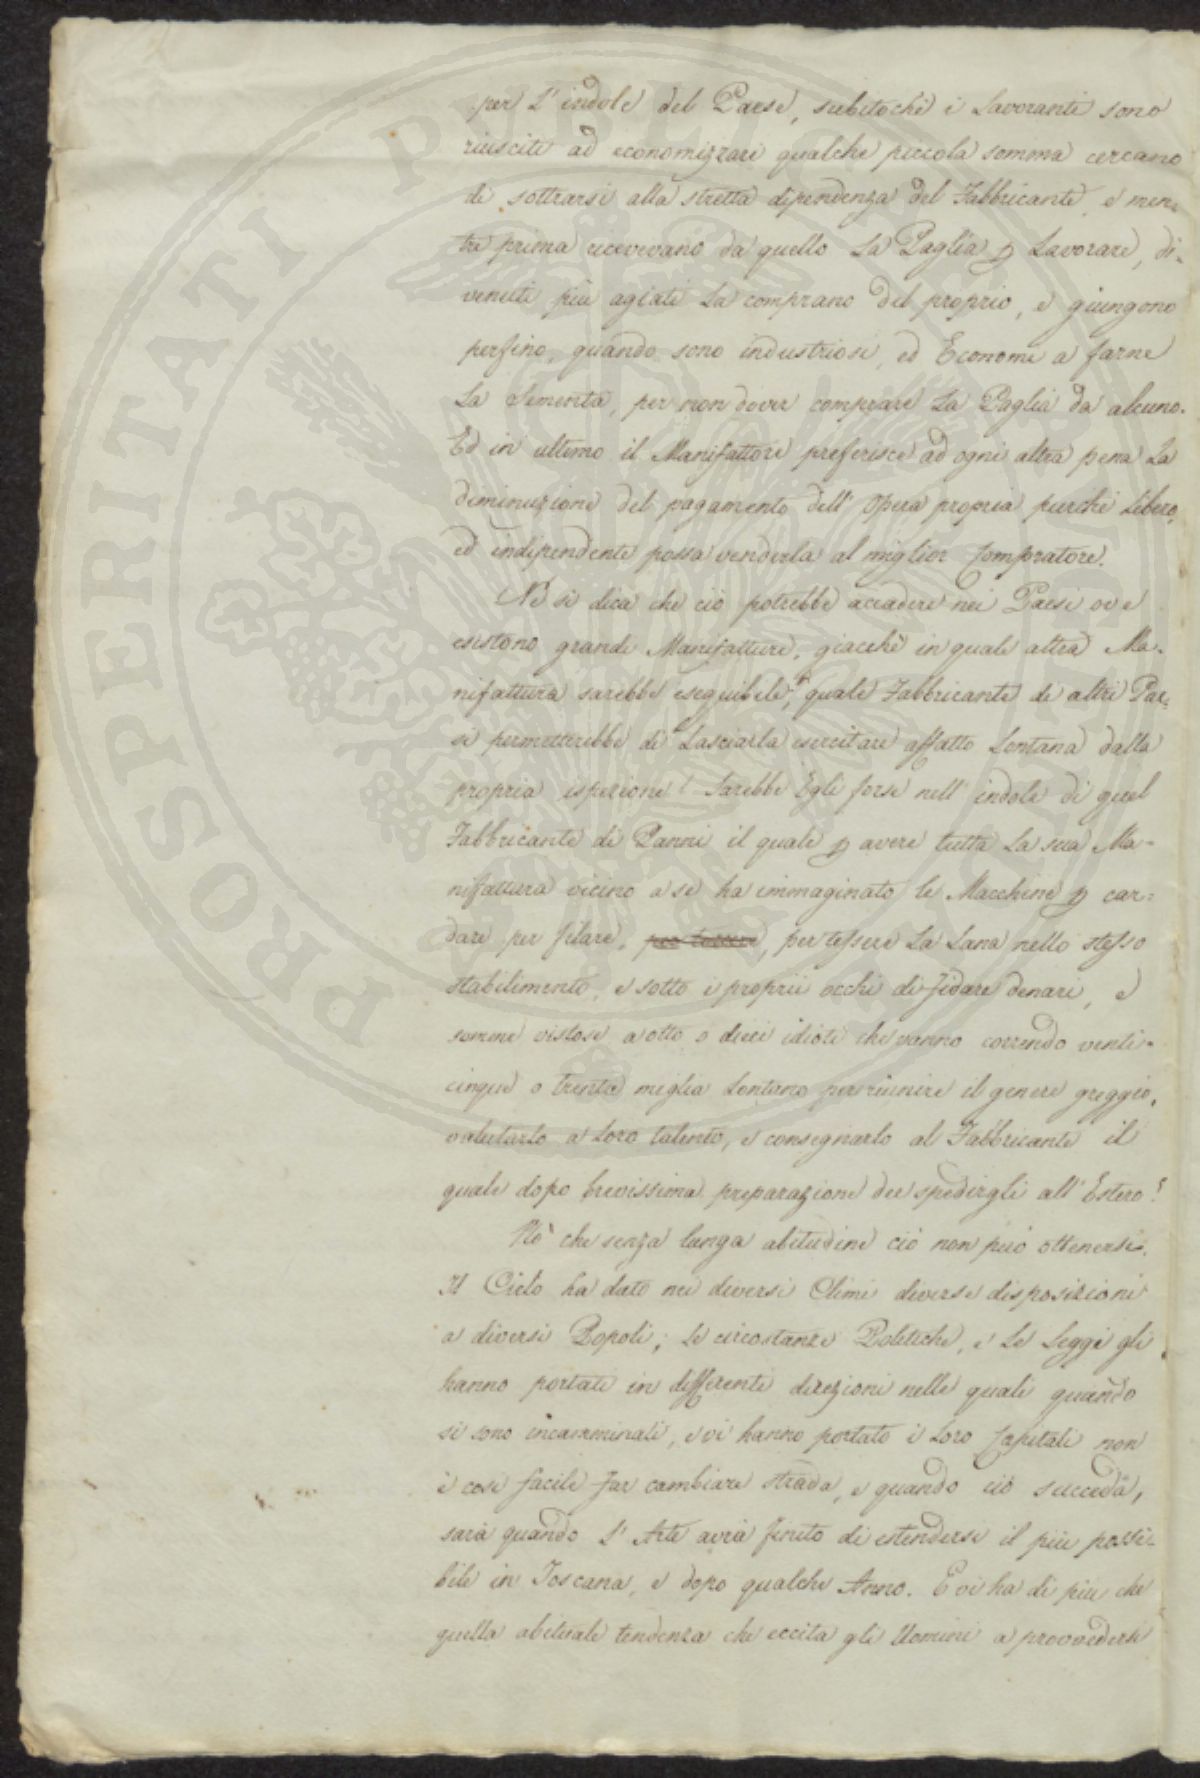 per l'indole del Paese, subitochè i Lavoranti sono
riusciti ad economizzare qualche piccola somma cercano
di sottrarsi alla stretta dipendenza del Fabbricante, e men-
tre prima ricevevano da quello la Paglia p Lavorare, di-
venuti più agiati La comprano del proprio, e giungono
perfino, quando sono industriosi, ed Economi a farne
La Sementa, per non dover comprare La Paglia da alcuno.
Ed in ultimo il Manifattore preferisce ad ogni altra pena La
diminuzione del pagamento dell'Opera propria purchè Libero,
ed indipendente possa venderla al miglior Compratore.
Nè si dica che ciò potrebbe accadere nei Paesi ove
esistono grandi Manifatture, giacchè in quale altra Ma-
nifattura sarebbe eseguibile, quale Fabbricante di altri Pae-
si permetterebbe di Lasciarla esercitare affatto Lontana dalla
propria ispezione? Sarebbe Egli forse nell'indole di quel
Fabbricante di Panni il quale p avere tutta La sua Ma-
nifattura vicino a se ha immaginato le Macchine p car-
dare per filare, per tessere, per tessere La Lana nello stesso
stabilimento, e sotto i proprii occhi di fidare denari, e
somme vistose a otto o dieci idioti che vanno correndo venti-
cinque o trenta miglia Lontano per riunire il genere greggio,
valutarlo a Loro talento, e consegnarlo al Fabbricante il
quale dopo brevissima preparazione dee spedirgli all'Estero?
Nò che senza lunga abitudine ciò non può ottenersi.
Il Cielo ha dato nei diversi Climi diverse disposizioni
a diversi Popoli; Le circostanze Politiche, e Le Leggi gli
hanno portati in differenti direzioni nelle quali quando
si sono incamminati, e vi hanno portato i Loro Capitali non
è così facile far cambiare strada, e quando ciò succeda,
sarà quando L'Arte avrà finito di estendersi il più possi-
bile in Toscana, e dopo qualche Anno. E vi ha di più che
quella abituale tendenza che eccita gli Uomini a provvedersi
PROSPERITATI PUBLICAE